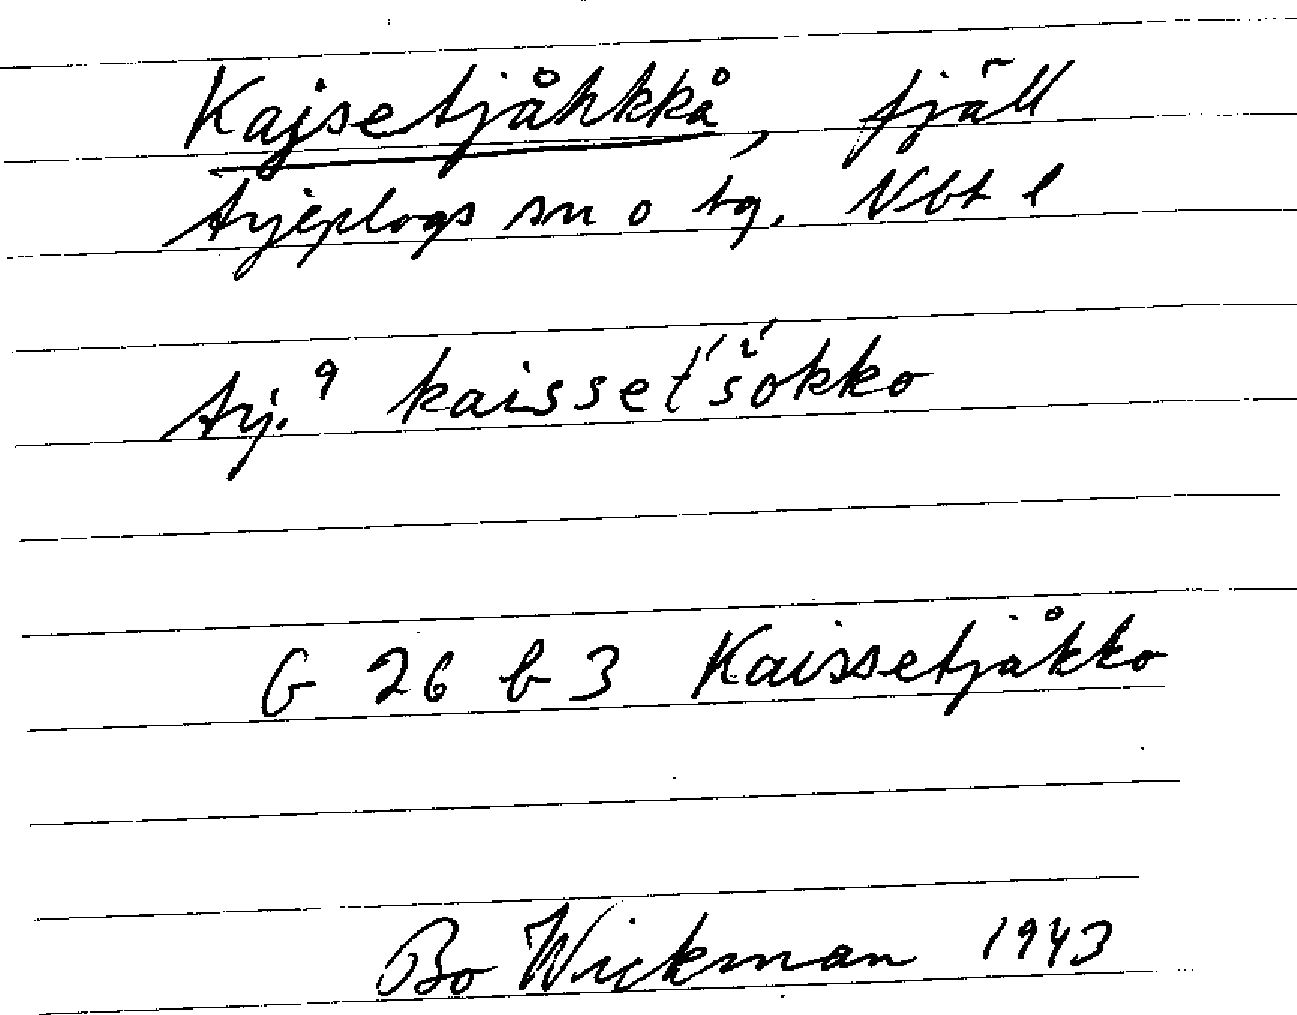 Kajsetjåhkkå, fjäll
Arjeplogs sn o tg. Nbt l
Arj. 9 kaisset́š́okko
G 26 b 3 Kaissetjåkko
Bo Wickman 1943